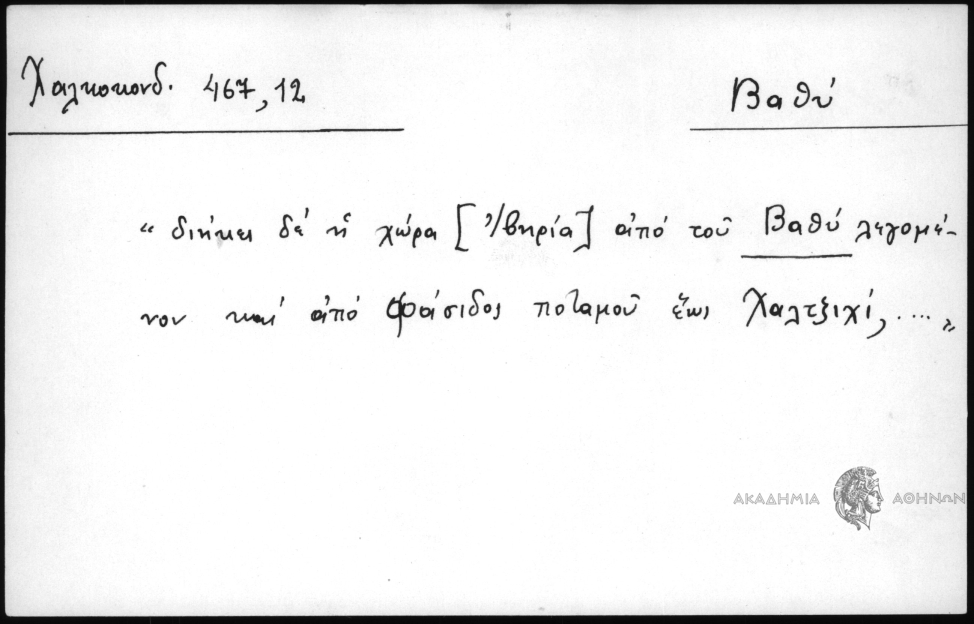 Χαλκοκονδ. 467,12
Βαθύ
“ διήκει δέ ἡ χώρα [Ἰβηρία] ἀπό τοῦ Βαθύ λεγομέ-
νον καί ἀπό Φάσιδος ποταμοῦ ἕως Χαλτζιχί, .... „
ΑΚΑΔΗΜΙΑ ΑΘΗΝΩΝ